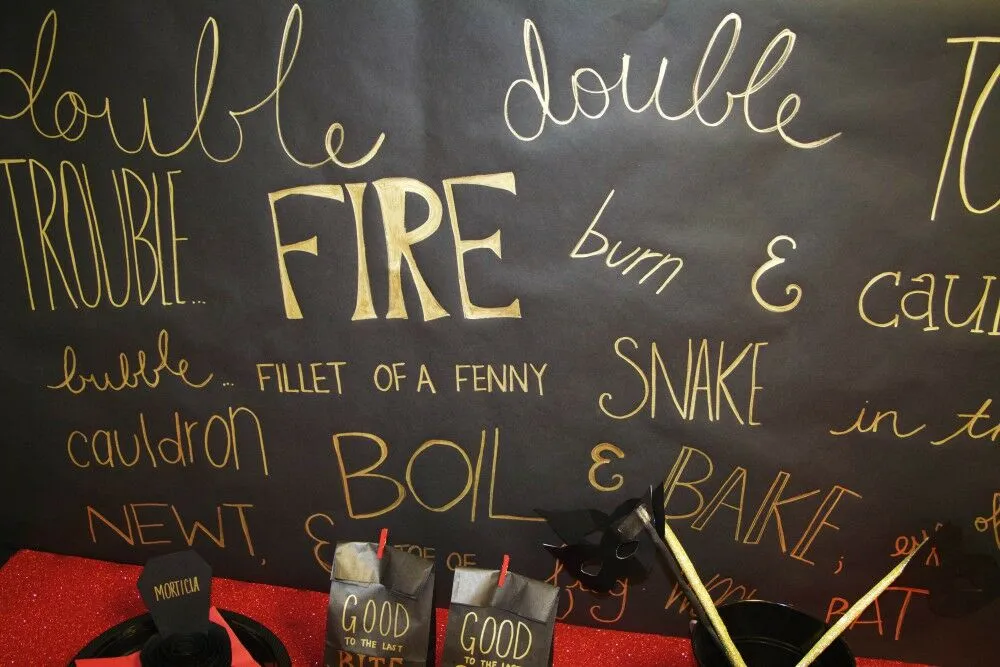 double double TO
TROUBLE... FIRE burn & caul
bubble... FILLET OF A FENNY SNAKE in th
cauldron BOIL & BAKE;
NEWT, & TOE OF frog
BAT
MORTICIA
GOOD
TO THE LAST
BITE
GOOD
TO THE LAST